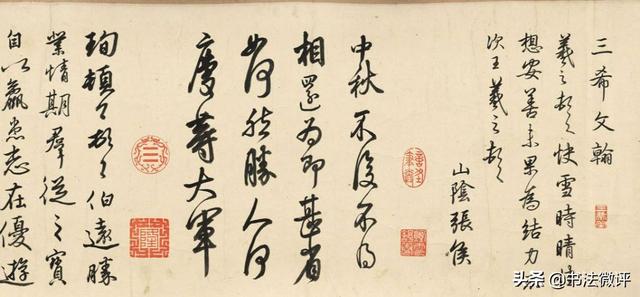 三希文翰
羲之頓首快雪時晴佳
想安善未果為結力不
次王羲之頓首
山陰張侯
中秋不復不得
相還為即甚省
如何然勝人何
慶等大軍
珣頓首頓首伯遠勝
業情期羣從之寶
自以羸患志在優遊
头条 @书法微评